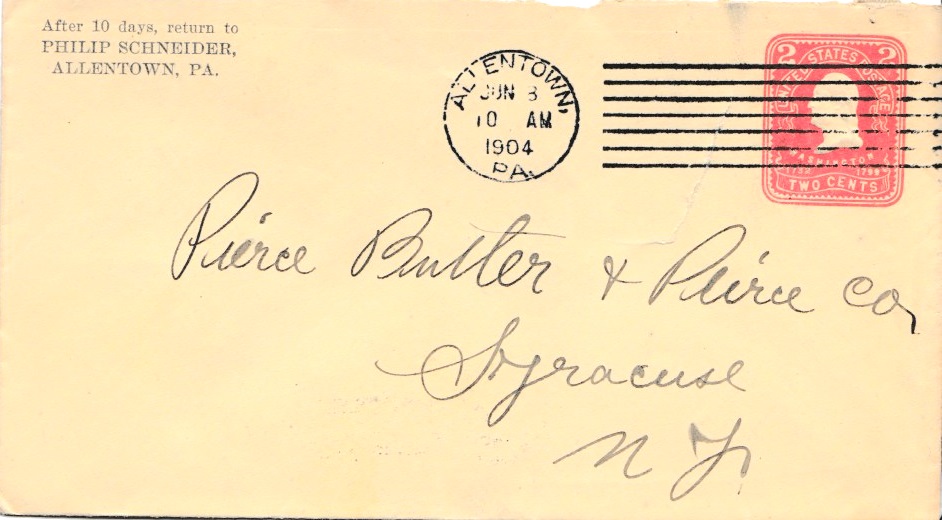 After 10 days, return to
PHILIP SCHNEIDER,
ALLENTOWN, PA.
ALLENTOWN,
JUN 3
10 AM
1904
PA.
2 2
UNITED STATES POSTAGE
WASHINGTON
1732 1799
TWO CENTS
Pierce Butler & Peirce Co,
Syracuse
N Y.